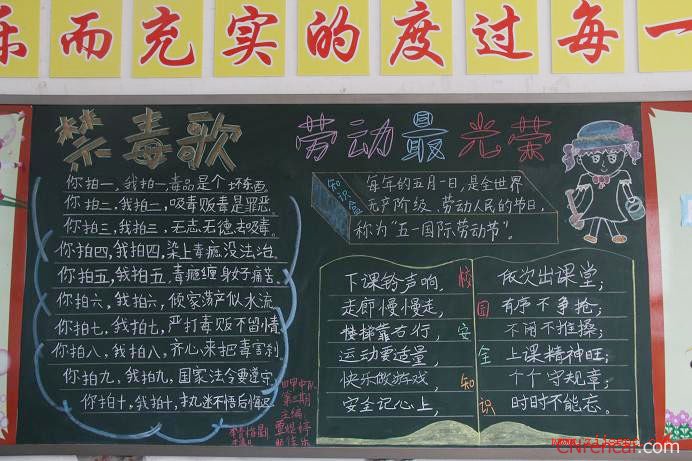 乐而充实的度过每一
禁毒歌
你拍一,我拍一,毒品是个坏东西
你拍二,我拍二,吸毒贩毒是罪恶.
你拍三,我拍三,无志无德去吸毒.
你拍四,我拍四,染上毒瘾没法治.
你拍五,我拍五,毒瘾缠身好痛苦.
你拍六,我拍六,倾家荡产似水流.
你拍七,我拍七,严打毒贩不留情.
你拍八,我拍八,齐心来把毒害刹.
你拍九,我拍九,国家法令要遵守.
你拍十,我拍十,执迷不悟后悔迟.
四甲中队
第二期
主编
劳动最光荣
知识窗
每年的五月一日,是全世界
无产阶级、劳动人民的节日,
称为“五一国际劳动节”。
校园安全知识
下课铃声响,
走廊慢慢走,
楼梯靠右行,
运动要适量,
快乐做游戏,
安全记心上,
依次出课堂;
有序不争抢;
不闹不推搡;
上课精神旺;
个个守规章;
时时不能忘。